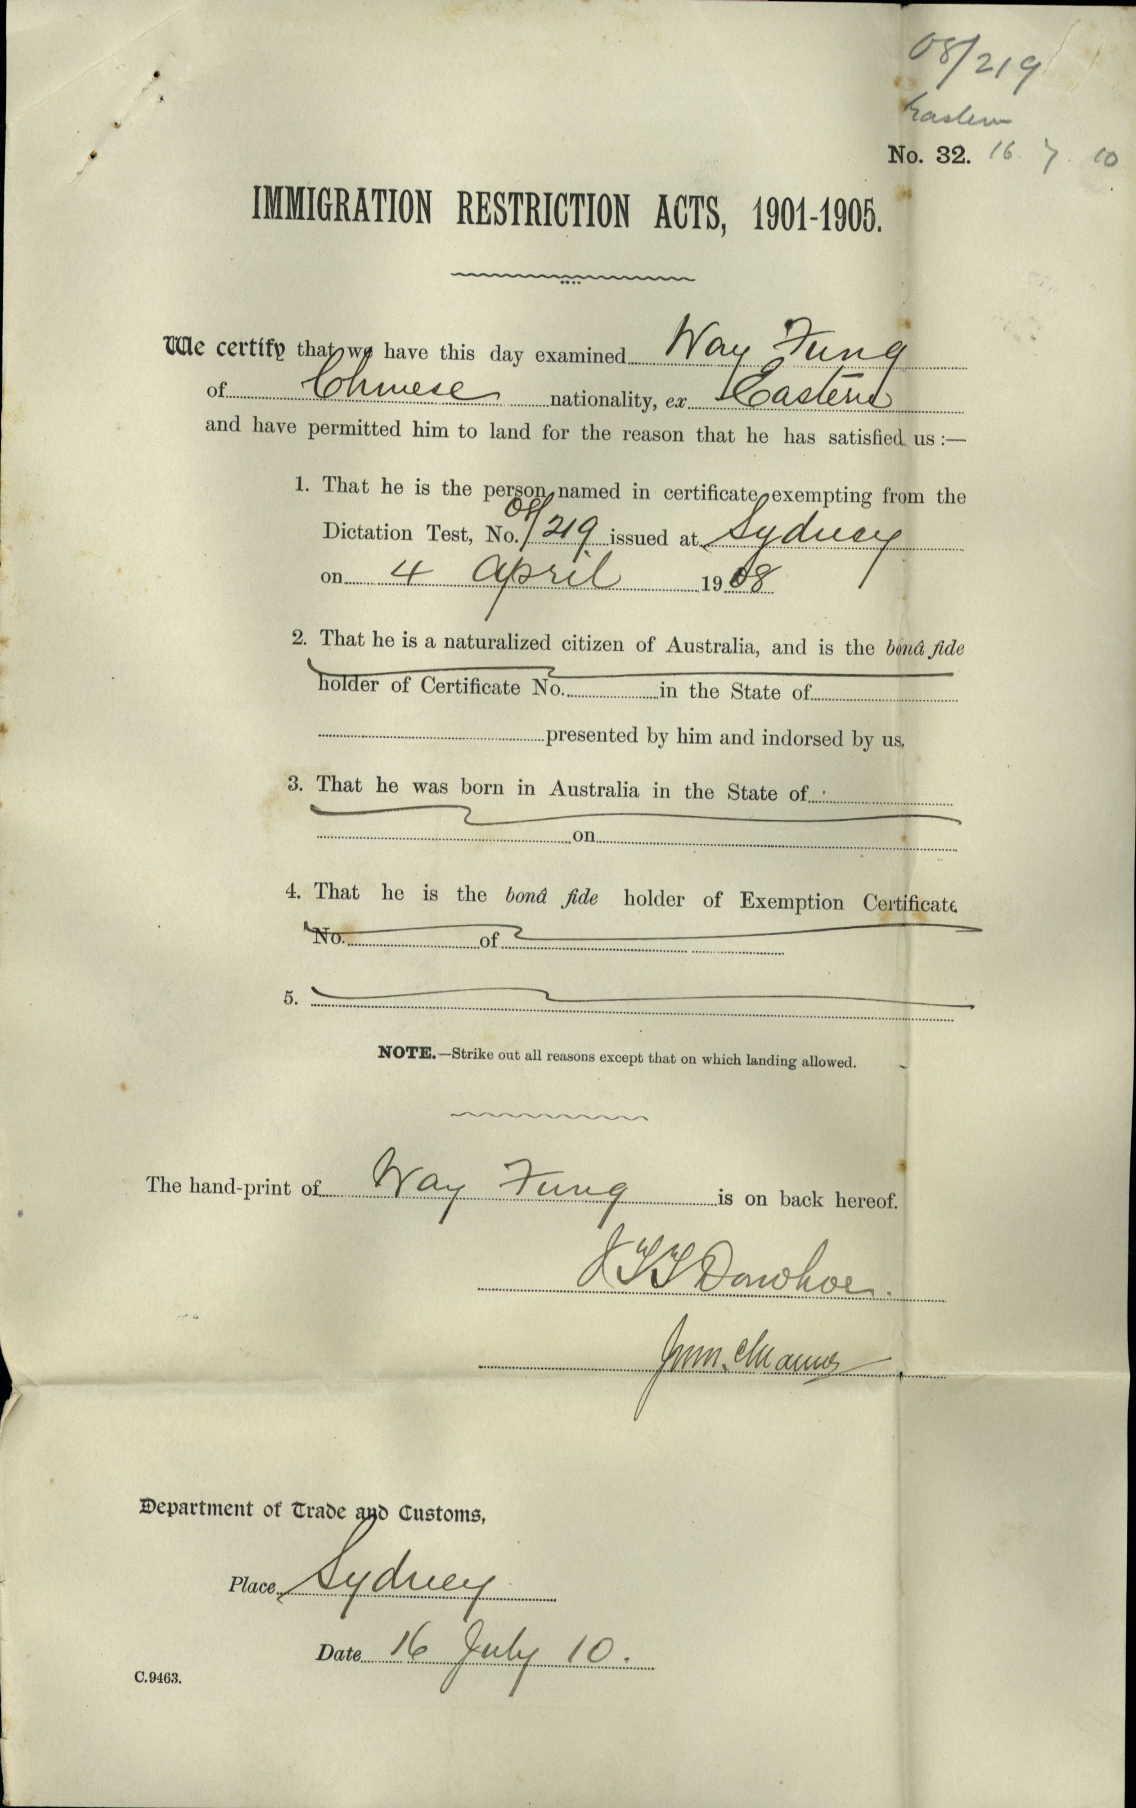 08/219
Eastern
No. 32. 16 7 10
IMMIGRATION RESTRICTION ACTS, 1901-1905.
We certify that we have this day examined Way Fung
of Chinese nationality, ex Eastern
and have permitted him to land for the reason that he has satisfied us :—
1. That he is the person named in certificate exempting from the
Dictation Test, No. 08/219 issued at Sydney
on 4 April 1908
2. That he is a naturalized citizen of Australia, and is the bonâ fide
holder of Certificate No. in the State of
presented by him and indorsed by us.
3. That he was born in Australia in the State of
on
4. That he is the bonâ fide holder of Exemption Certificate
No. of
5.
NOTE.—Strike out all reasons except that on which landing allowed.
The hand-print of Way Fung is on back hereof.
J T T Donohoe.
Department of Trade and Customs,
Place Sydney
Date 16 July 10.
C.9463.